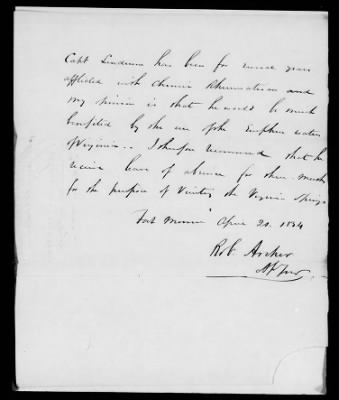 Capt Lendrum has been for several years
afflicted with chronic Rheumatism and
my opinion is that he would be much
benefited by the use of the Sulphur waters
of Virginia. I therefore recommend that he
receive leave of absence for three months
for the purpose of visiting the Virginia Springs
Fort Monroe April 20. 1834
Rob. Archer